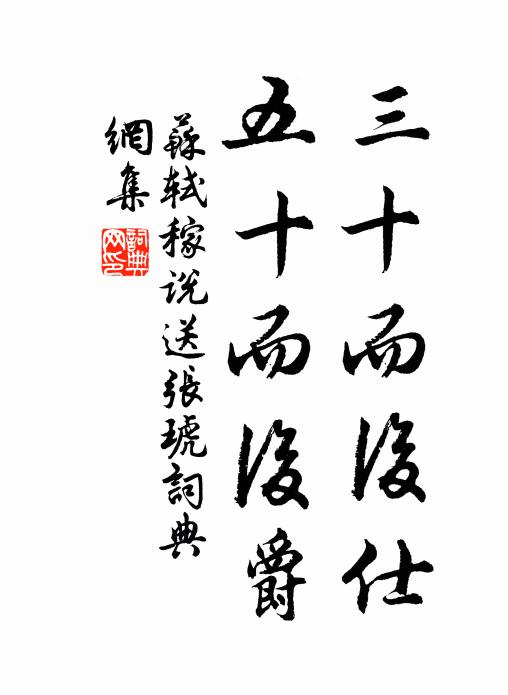 三十而後仕
五十而後爵
蘇軾稼说送張琥詞典
網集
詞典
网印